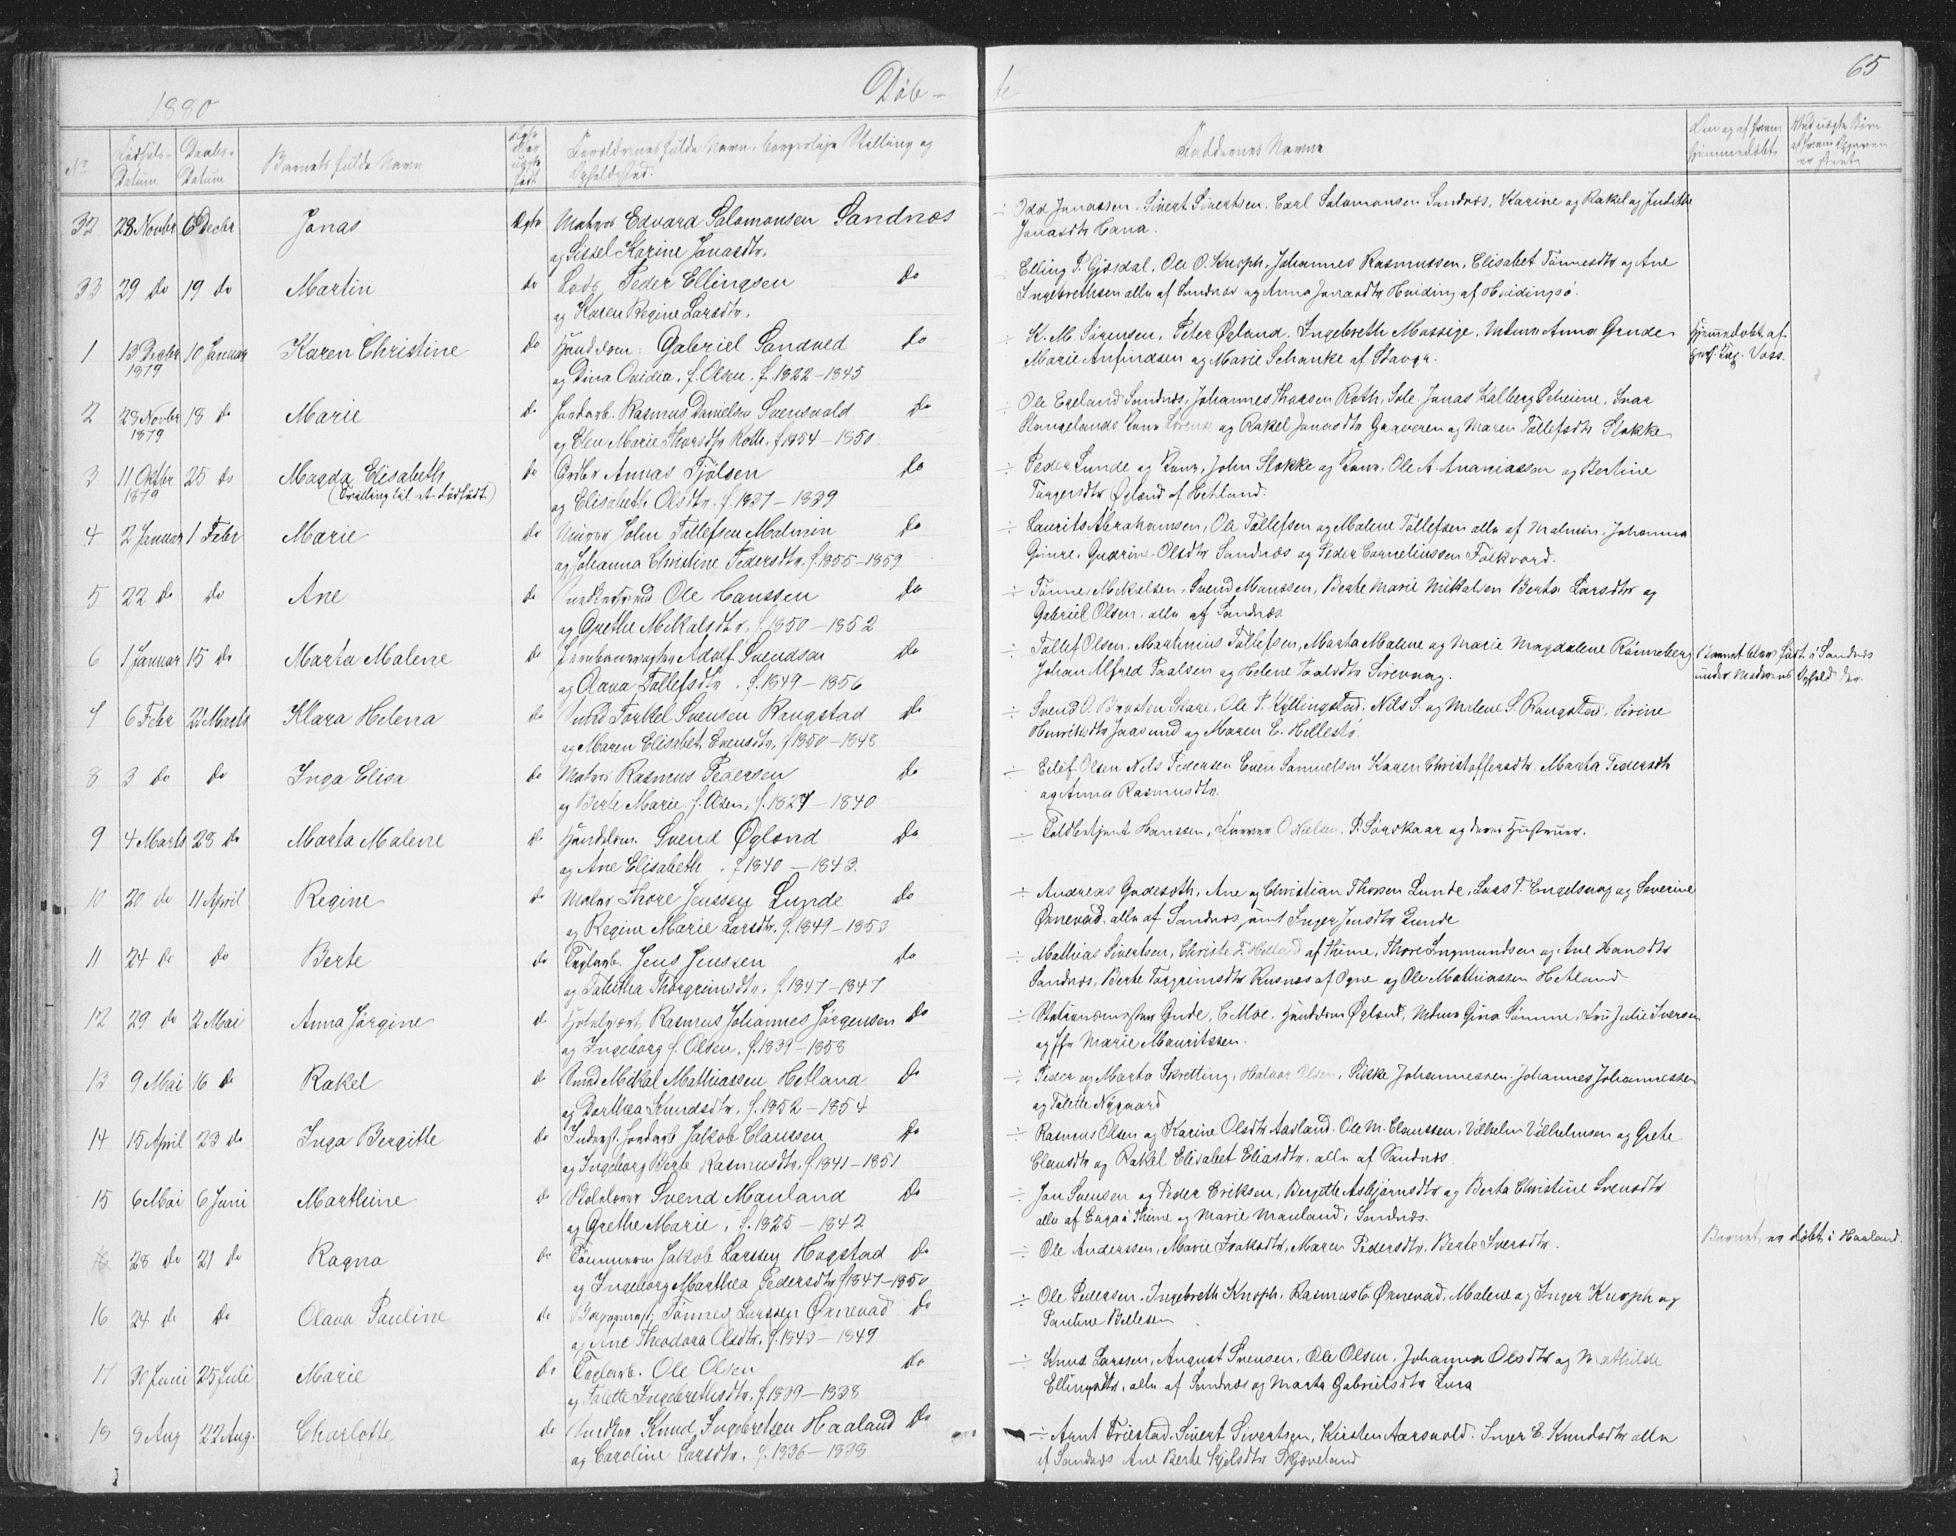 1880
Døb-
te
65
No
Fødsels-Datum
Daabs-Datum
Barnets fulde Navn
Forældrenes fulde Navn, borgerlige Stilling og Opholdssted.
Faddernes Navne
32 28 Novbr 6 Decbr Jonas Ægte Matros Edvard Salomonsen Sandnæs
og Sissel Karine Jonasdtr.
÷ Odd Jonassen. Sivert Sivertsen. Carl Salomonsen Sandnæs. Karine og Rakel og Judithe
Jonasdtr Hana.
33 29 do 19 do Martin do Lods Peder Ellingsen do
og Karen Regine Larsdtr.
Elling P. Gjesdal. Ole O. Knoph. Johannes Rasmussen. Elisabet Tønnesdtr og Ane
Ingebrethsen alle af Sandnæs og Anna Jonasdtr Hviding af Hvidingsø.
1 13 Decbr 1879 10 Januar Karen Christine do Handelsm: Gabriel Sandved do
og Dina Ovidia. f. Olsen. f. 1822-1845
÷ K. M. Sørensen, Peter Øgland. Ingebreth Massige. Mdme Anna Grude
Marie Anfindsen og Marie Schanke af Stavgr.
Hjemmedøbt af
Voss.
2 28 Novbr 1879 18 do Marie do Jordarb. Rasmus Danielsen Svensvold do
og Elen Marie Thorsdtr Roth. f 1854-1850
÷ Ole Egeland Sandnæs, Johannes Thorsen Roth, Sole. Jonas Kalberg Øcheime. Svar
Stangelands Kone og Rakel Jonasdtr Graveren og Maren Tollefsdtr Stokke
3 11 Oktbr 1879 25 do Magda Elisabeth do Grdbr Annas Tjølsen do
(Tvilling til et dødfødt)
og Elisabeth Olsdtr. f. 1837-1839
÷ Peder Lunde og Kone, John Stokke og Kone, Ole A. Ananiassen og Bertine
Torgersdtr Øgland af Hetland.
4 2 Januar 1 Febr Marie do Murer John Tollefsen Malmin do
og Johanna Christine Pedersdtr. f. 1855-1859
÷ Laurits Abrahamsen, Ole Tollefsen og Malene Tollefsen alle af Malmin. Johanna
Gimre. Gudrine Olsdtr Sandnæs og Peder Corneliussen Folkvord.
5 22 do do Ane do Ole Hanssen do
og Grethe Mikalsdtr. f 1850-1852
÷ Tønne Mikalsen, Svend Monssen, Berte Marie Mikalsen Berta Larsdtr og
Gabriel Olsen. alle af Sandnæs
6 1 Januar 15 do Marta Malene do Adolf Svendsen do
og Aana Tollefsdtr. f. 1849-1856
÷ Tollef Olsen, Martinius Tollefsen, Marta Malene og Marie Magdalene Rønneberg
Johan Alfred Paalsen og Helene Paalsdtr Sirevaag.
Barnet blev født i Sandnæs
under Moderens Ophold der.
7 6 Febr 21 Marts Klara Helena do Torkel Svensen Rangstad do
og Maren Elisabet Svensdtr. f 1850-1848
÷ Svend O. Brusten Skare, Ole P. Kyllingstad. Nils S. og Malene S. Rangstad. Sirine
Henriksdtr Jaasund og Maren E. Hillestø.
8 3 do do Inga Elisa do Matros Rasmus Pedersen do
og Berte Marie f. Olsen. f. 1827-1840
÷ Eilef Olsen Nils Pedersen Even Samuelsen Karen Christoffersdtr. Marta Pedersdtr
og Anna Rasmusdtr.
9 4 Marts 28 do Marta Malene do Handelsm. Svend Øgland do
og Ane Elisabeth. f 1840-1843.
÷ Toldbetjent Hanssen, Farver O. Nielsen. P. Sørdkaar og deres Hustruer.
10 20 do 11 April Regine do Matros Thore Jenssen Lunde do
og Regine Marie Larsdtr. f. 1849-1853
÷ Andreas Gudesoth, Ane og Christian Thorsen Lunde. Lars T. Engelsvog og Severine
Ørnevad. alle af Sandnæs samt Inger Jensdtr Lunde
11 24 do do Berte do Teglarb. Jens Jenssen do
og Tabitha Thorgrimsdtr. f. 1847-1847
÷ Mathias Sivertsen, Christe F. Helland af Thime, Thore Ingmundsen og Ane Hansdtr
Sandnæs. Berte Torgrimsdtr Rusnæs af Ogne og Ole Mathiassen Hetland
12 29 do 2 Mai Anna Jørgine do Hotelvært Rasmus Johannes Jørgensen do
og Ingeborg f. Olsen. f. 1839-1858
÷ Stationsmester Grude, C Moe. Handelsm Øgland, Mdme Gina Sømme. Fru Julie Iversen
og Jfr Marie Mauritssen.
13 9 Mai 16 do Rakel do Mikal Mathiassen Hetland do
og Dorthea Knudsdtr. f. 1852-1854
÷ Peder og Marta Skretting, Halvor Olsen, Sikke Johannessen. Johannes Johannessen
og Talette Nygaard
14 15 April 23 do Inga Bergitte do Inderst. Jordarb Jakob Claussen do
og Ingeborg Berte Rasmusdtr. f 1841-1851
÷ Rasmus Olsen og Karine Olsdtr Aadland. Ole M. Claussen, Vilhelm Vilhelmsen og Grete
Clausdtr og Rakel Elisabet Eliasdtr. alle af Sandnæs.
15 6 Mai 6 Juni Marthine do Skolelærer Svend Mauland do
og Grethe Marie. f. 1825-1842
÷ Jon Svensen og Peder Eriksen, Bergitte Asbjørnsdtr og Berta Christine Svensdtr
alle af Enge i Thime og Marie Mauland. Sandnæs.
28 do 21 do Ragna do Tømmerm Jakob Larssen Hogstad do
og Ingeborg Marthea Pedersdtr f 1847-1850
÷ Ole Anderssen, Marie Isaksdtr, Maren Pedersdtr. Berte Iversdtr.
Barnet er døbt i Haaland.
16 24 do do Olava Pauline do Tønnes Larssen Ørnevad do
og Ane Theodora Olsdtr. f. 1843-1849
÷ Ole Pedersen. Ingebreth Knoph, Rasmus E. Ørnevad, Malene og Inger Knoph og
Pauline Billesen
17 30 Juni 25 Juli Marie do Teglarb. Ole Olsen do
og Talette Ingebrethsdtr. f. 1839-1838
÷ Knud Larssen, August Svensen. Ole Olsen. Johanna Olsdtr og Mathilde
Ellingsdtr. alle af Sandnæs og Marta Gabrielsdtr Lura
18 8 Aug 22 Aug. Charlotte do Knud Ingebretsen Haaland do
og Caroline Larsdtr. f. 1836-1838
÷ Aamt Friestad. Sivert Sivertsen, Kirsten Aarsvold. Inger E. Knudsdtr alle
af Sandnæs Ane Berte Kjelsdtr Skjæveland